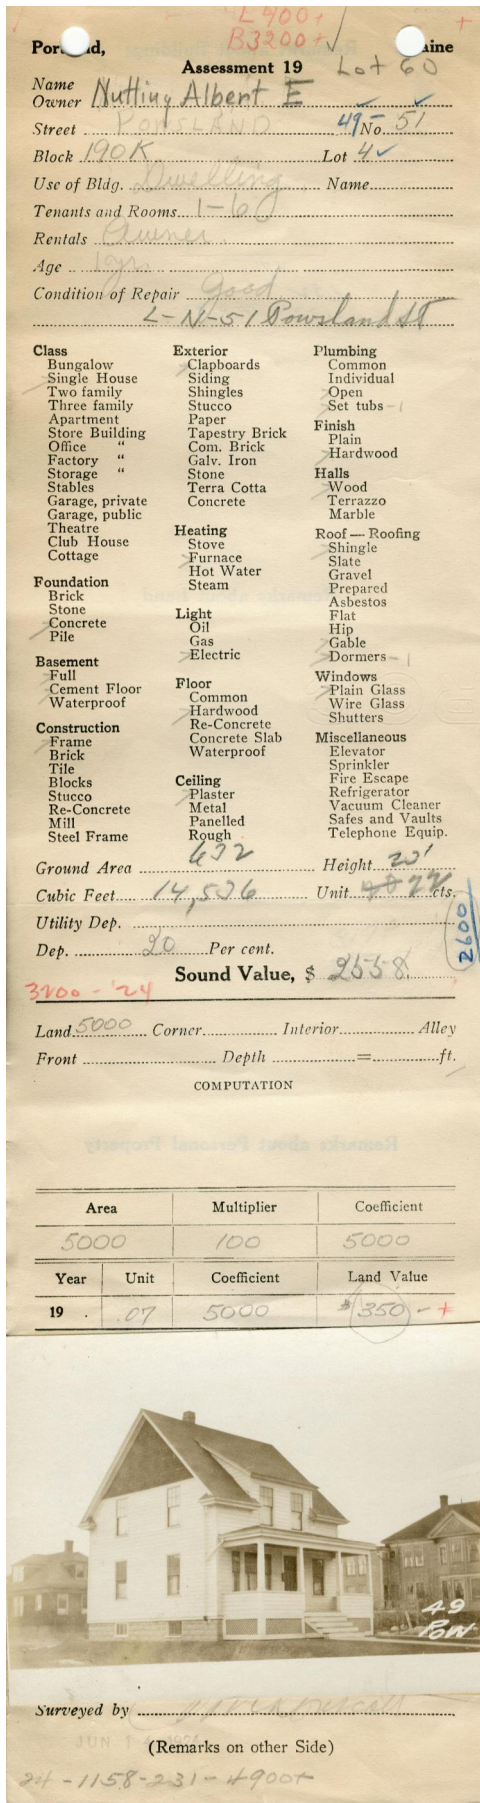 L400+
B3200+
Portland, Maine
Assessment 19 Lot 60
Name
Owner Nutting Albert E
Street POWSLAND 49- No. 51
Block 190K Lot 4
Use of Bldg. Dwelling Name
Tenants and Rooms 1-6
Rentals Owner
Age 1 yr.
Condition of Repair Good
L-N-51 Powsland St
Class
Bungalow
Single House
Two family
Three family
Apartment
Store Building
Office "
Factory "
Storage "
Stables
Garage, private
Garage, public
Theatre
Club House
Cottage
Foundation
Brick
Stone
Concrete
Pile
Basement
Full
Cement Floor
Waterproof
Construction
Frame
Brick
Tile
Blocks
Stucco
Re-Concrete
Mill
Steel Frame
Exterior
Clapboards
Siding
Shingles
Stucco
Paper
Tapestry Brick
Com. Brick
Galv. Iron
Stone
Terra Cotta
Concrete
Heating
Stove
Furnace
Hot Water
Steam
Light
Oil
Gas
Electric
Floor
Common
Hardwood
Re-Concrete
Concrete Slab
Waterproof
Ceiling
Plaster
Metal
Panelled
Rough
Plumbing
Common
Individual
Open
Set tubs - 1
Finish
Plain
Hardwood
Halls
Wood
Terrazzo
Marble
Roof — Roofing
Shingle
Slate
Gravel
Prepared
Asbestos
Flat
Hip
Gable
Dormers - 1
Windows
Plain Glass
Wire Glass
Shutters
Miscellaneous
Elevator
Sprinkler
Fire Escape
Refrigerator
Vacuum Cleaner
Safes and Vaults
Telephone Equip.
Ground Area 632 Height 23'
Cubic Feet 14,536 Unit 22 cts.
Utility Dep.
Dep. 20 Per cent. 2600
Sound Value, $ 2558.
3200 - '24
Land 5000 Corner Interior Alley
Front Depth = ft.
COMPUTATION
Area Multiplier Coefficient
5000 100 5000
Year Unit Coefficient Land Value
19 .07 5000 $350 - +
49
POW
Surveyed by
JUN 1
(Remarks on other Side)
24-1158-231-4900+